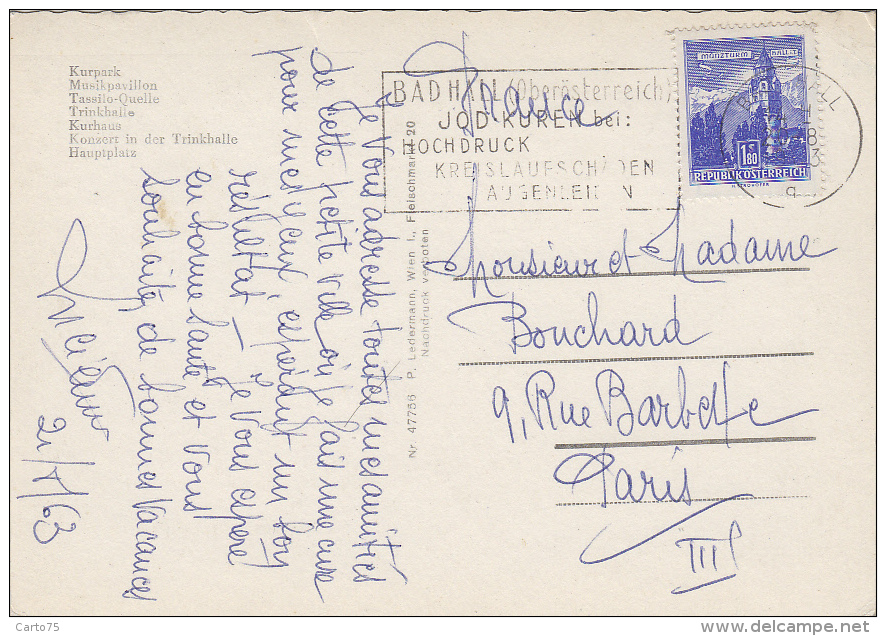 Kurpark
Musikpavillon
Tassilo-Quelle
Trinkhalle
Kurhaus
Konzert in der Trinkhalle
Hauptplatz
Je vous adresse toutes mes amitiés
de cette petite ville où je fais une cure
pour mes yeux, espérant un bon
résultat – Je vous espère
en bonne santé et vous
souhaite de bonnes vacances
21/7/63
Nr 47756 P. Ledermann, Wien I., Fleischmarkt 20
Nachdruck verboten
France
BAD HALL (Oberösterreich)
JOD-KUREN bei:
HOCHDRUCK
KREISLAUFSCHÄDEN
AUGENLEIDEN
MÜNZTURM HALL I.T.
1.80
REPUBLIK ÖSTERREICH
BAD HALL
Monsieur et Madame
Bouchard
9, Rue Barbette
Paris
III
Carto75
www.delcampe.net